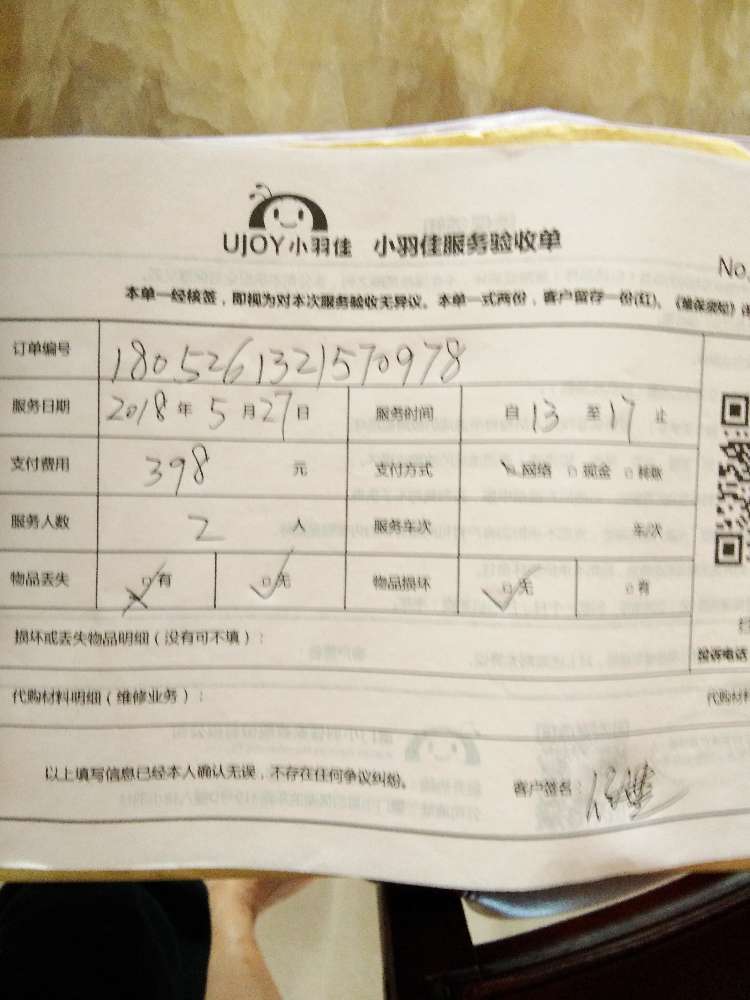 UJOY小羽佳 小羽佳服务验收单
No.
本单一经核签，即视为对本次服务验收无异议。本单一式两份，客户留存一份(红)、《维保须知》
订单编号 1805261321570978
服务日期 2018年5月27日 服务时间 自13至17止
支付费用 398元 支付方式 网络 现金 耗账
服务人数 2人 服务车次 车次
物品丢失 有 无 物品损坏 无 有
损坏或丢失物品明细（没有可不填）：
投诉电话
代购材料明细（维修业务）：
代购材料
以上填写信息已经本人确认无误，不存在任何争议纠纷。 客户签名：